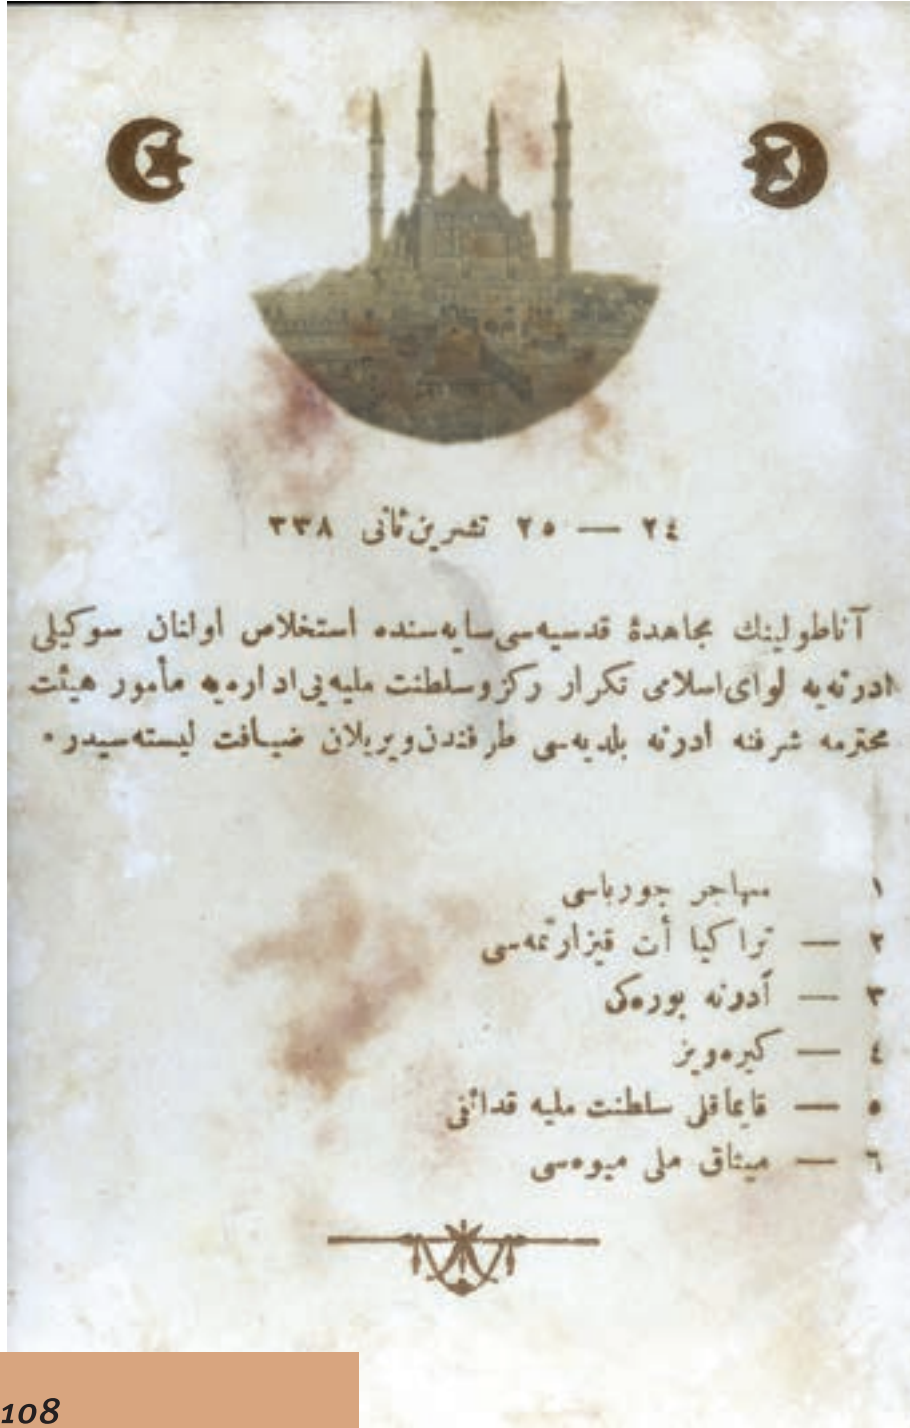 ٢٤ — ٢٥ تشرین ثانی ٣٣٨
آناطولینك مجاهدهٔ قدسیه‌سی سایه‌سنده استخلاص اولنان سوكیلی
ادرنه‌یه لوای اسلامی تكرار ركز وسلطنت ملیه‌یی اداره‌یه مأمور هیئت
محترمه شرفنه ادرنه بلدیه‌سی طرفندن ویریلان ضیافت لیسته‌سیدر .
١ مهاجر چورباسی
٢ — تراكیا أت قیزارتمه‌سی
٣ — أدرنه بوره‌كی
٤ — كیره‌ویز
٥ — قایماقلی سلطنت ملیه قدائفی
٦ — میثاق ملی میوه‌سی
108